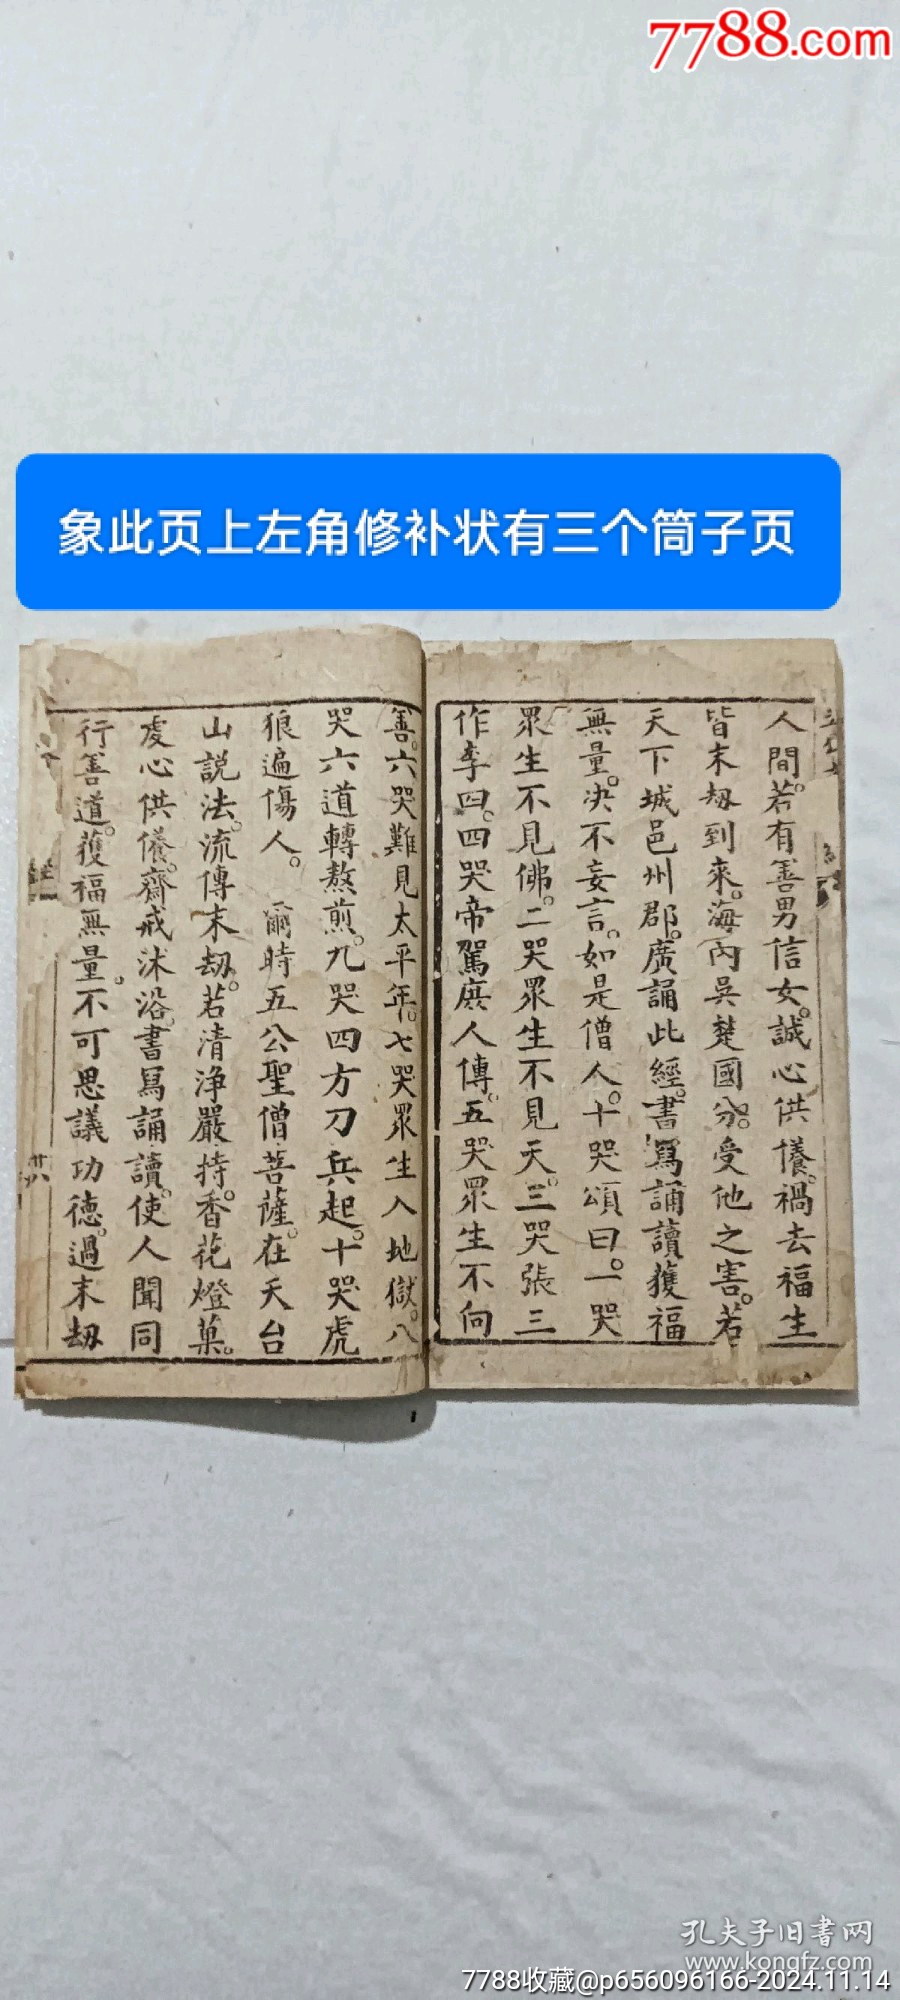 7788.com
象此页上左角修补状有三个筒子页
人間。若有善男信女。誠心供養。禍去福生
皆末刼到來。海內吳楚國分。受他之害。若
天下城邑州郡。廣誦此經。書寫誦讀獲福
無量。决不妄言。如是僧人。十哭頌曰。一哭
眾生不見佛。二哭眾生不見天。三哭張三
作李四。四哭帝駕庶人傳。五哭眾生不向
善。六哭難見太平年。七哭眾生入地獄。八
哭六道轉熬煎。九哭四方刀兵起。十哭虎
狼遍傷人。爾時五公聖僧菩薩。在天台
山說法。流傳末刼。若清淨嚴持。香花燈菓。
虔心供養。齋戒沐浴。書寫誦讀。使人聞同
行善道。獲福無量。不可思議功德。過末刼
經
廿八
孔夫子旧书网
www.kongfz.com
7788收藏@p656096166-2024.11.14